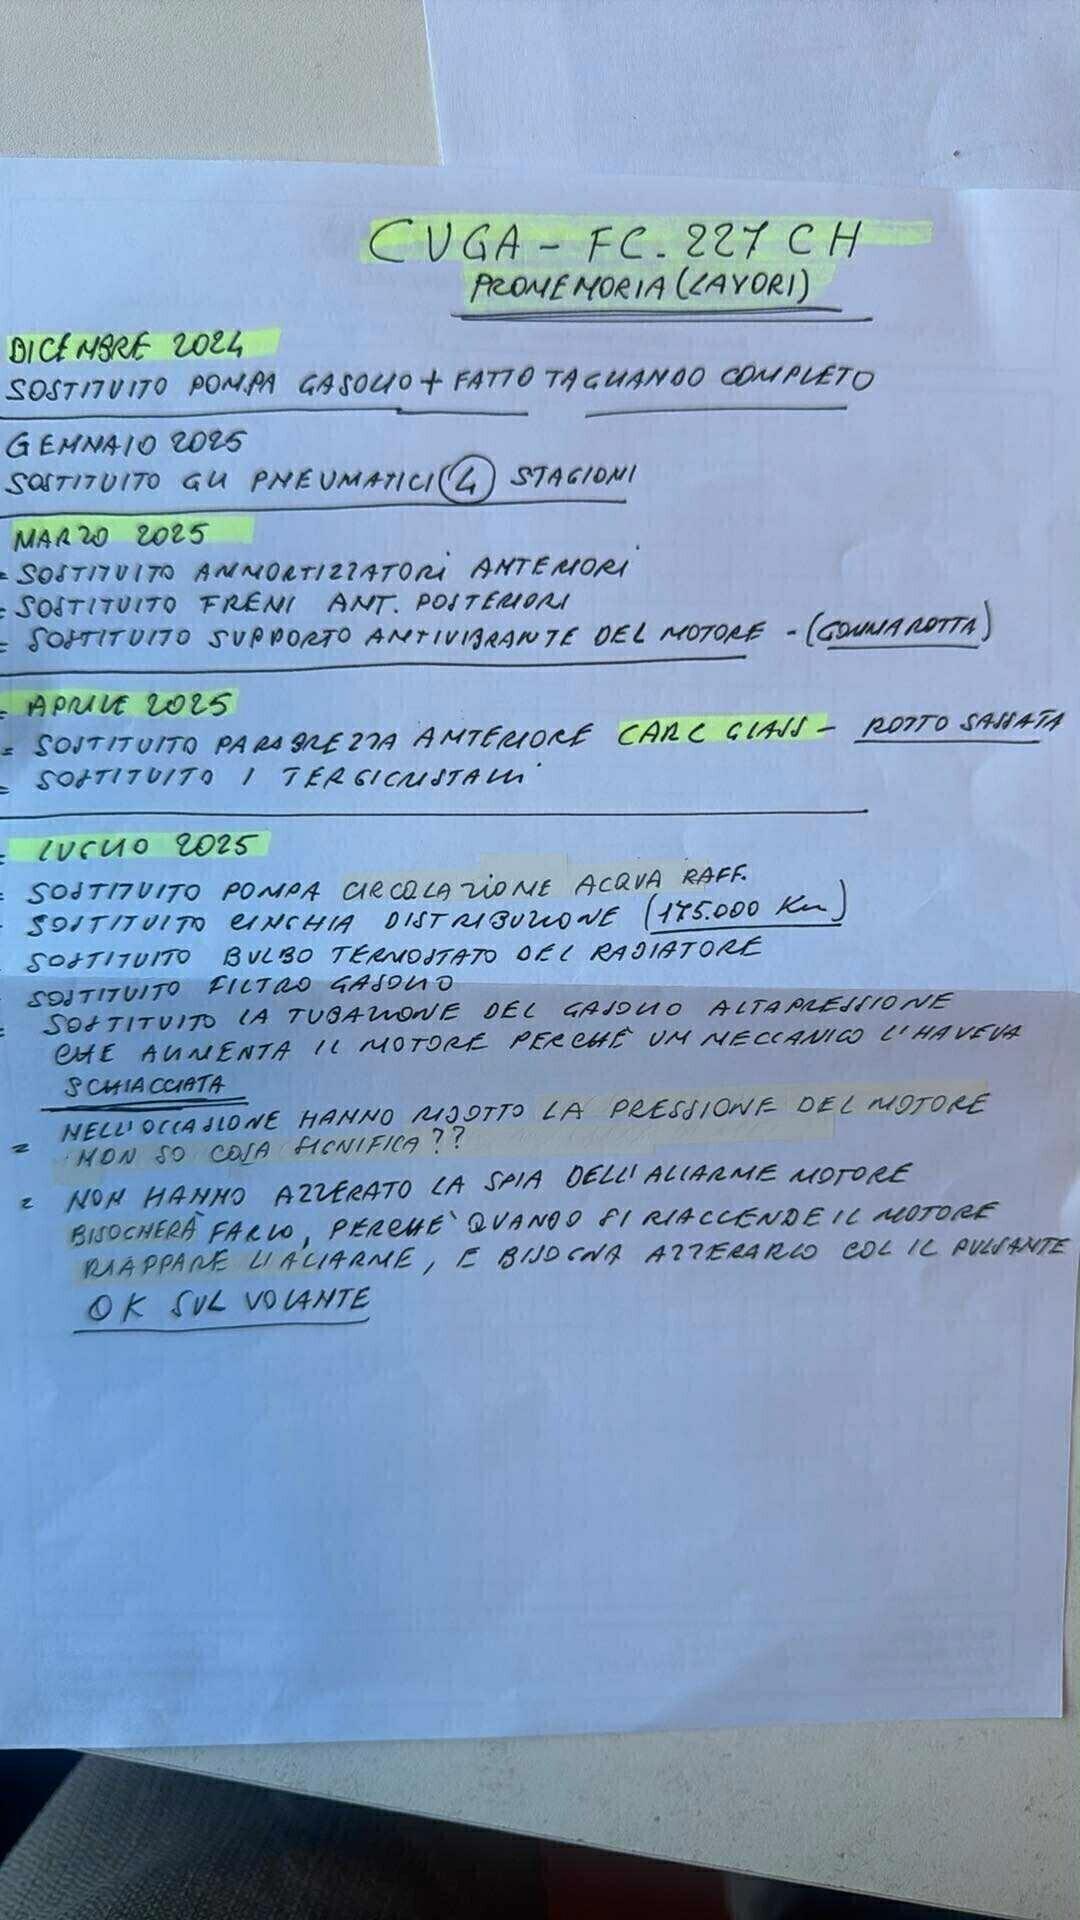 CUGA - FC. 227 CH
PROMEMORIA (LAVORI)
DICEMBRE 2024
SOSTITUITO POMPA GASOLIO + FATTO TAGLIANDO COMPLETO
GENNAIO 2025
SOSTITUITO GLI PNEUMATICI (4) STAGIONI
MARZO 2025
= SOSTITUITO AMMORTIZZATORI ANTERIORI
= SOSTITUITO FRENI ANT. POSTERIORI
= SOSTITUITO SUPPORTO ANTIVIBRANTE DEL MOTORE - (GOMMA ROTTA)
= APRILE 2025
= SOSTITUITO PARABREZZA ANTERIORE CARC GLASS - ROTTO SASSATA
= SOSTITUITO I TERGICRISTALLI
= LUGLIO 2025
= SOSTITUITO POMPA CIRCOLAZIONE ACQUA RAFF.
- SOSTITUITO CINGHIA DISTRIBUZIONE (175.000 Km)
- SOSTITUITO BULBO TERMOSTATO DEL RADIATORE
- SOSTITUITO FILTRO GASOLIO
= SOSTITUITO LA TUBAZIONE DEL GASOLIO ALTAPRESSIONE
CHE AUMENTA IL MOTORE PERCHÉ UN MECCANICO L'HAVEVA
SCHIACCIATA
= NELL'OCCASIONE HANNO RIDOTTO LA PRESSIONE DEL MOTORE
NON SO COSA SIGNIFICA??
= NON HANNO AZZERATO LA SPIA DELL'ALLARME MOTORE
BISOGNERÀ FARLO, PERCHE' QUANDO SI RIACCENDE IL MOTORE
RIAPPARE L'ALLARME, E BISOGNA AZZERARLO COL IL PULSANTE
OK SUL VOLANTE